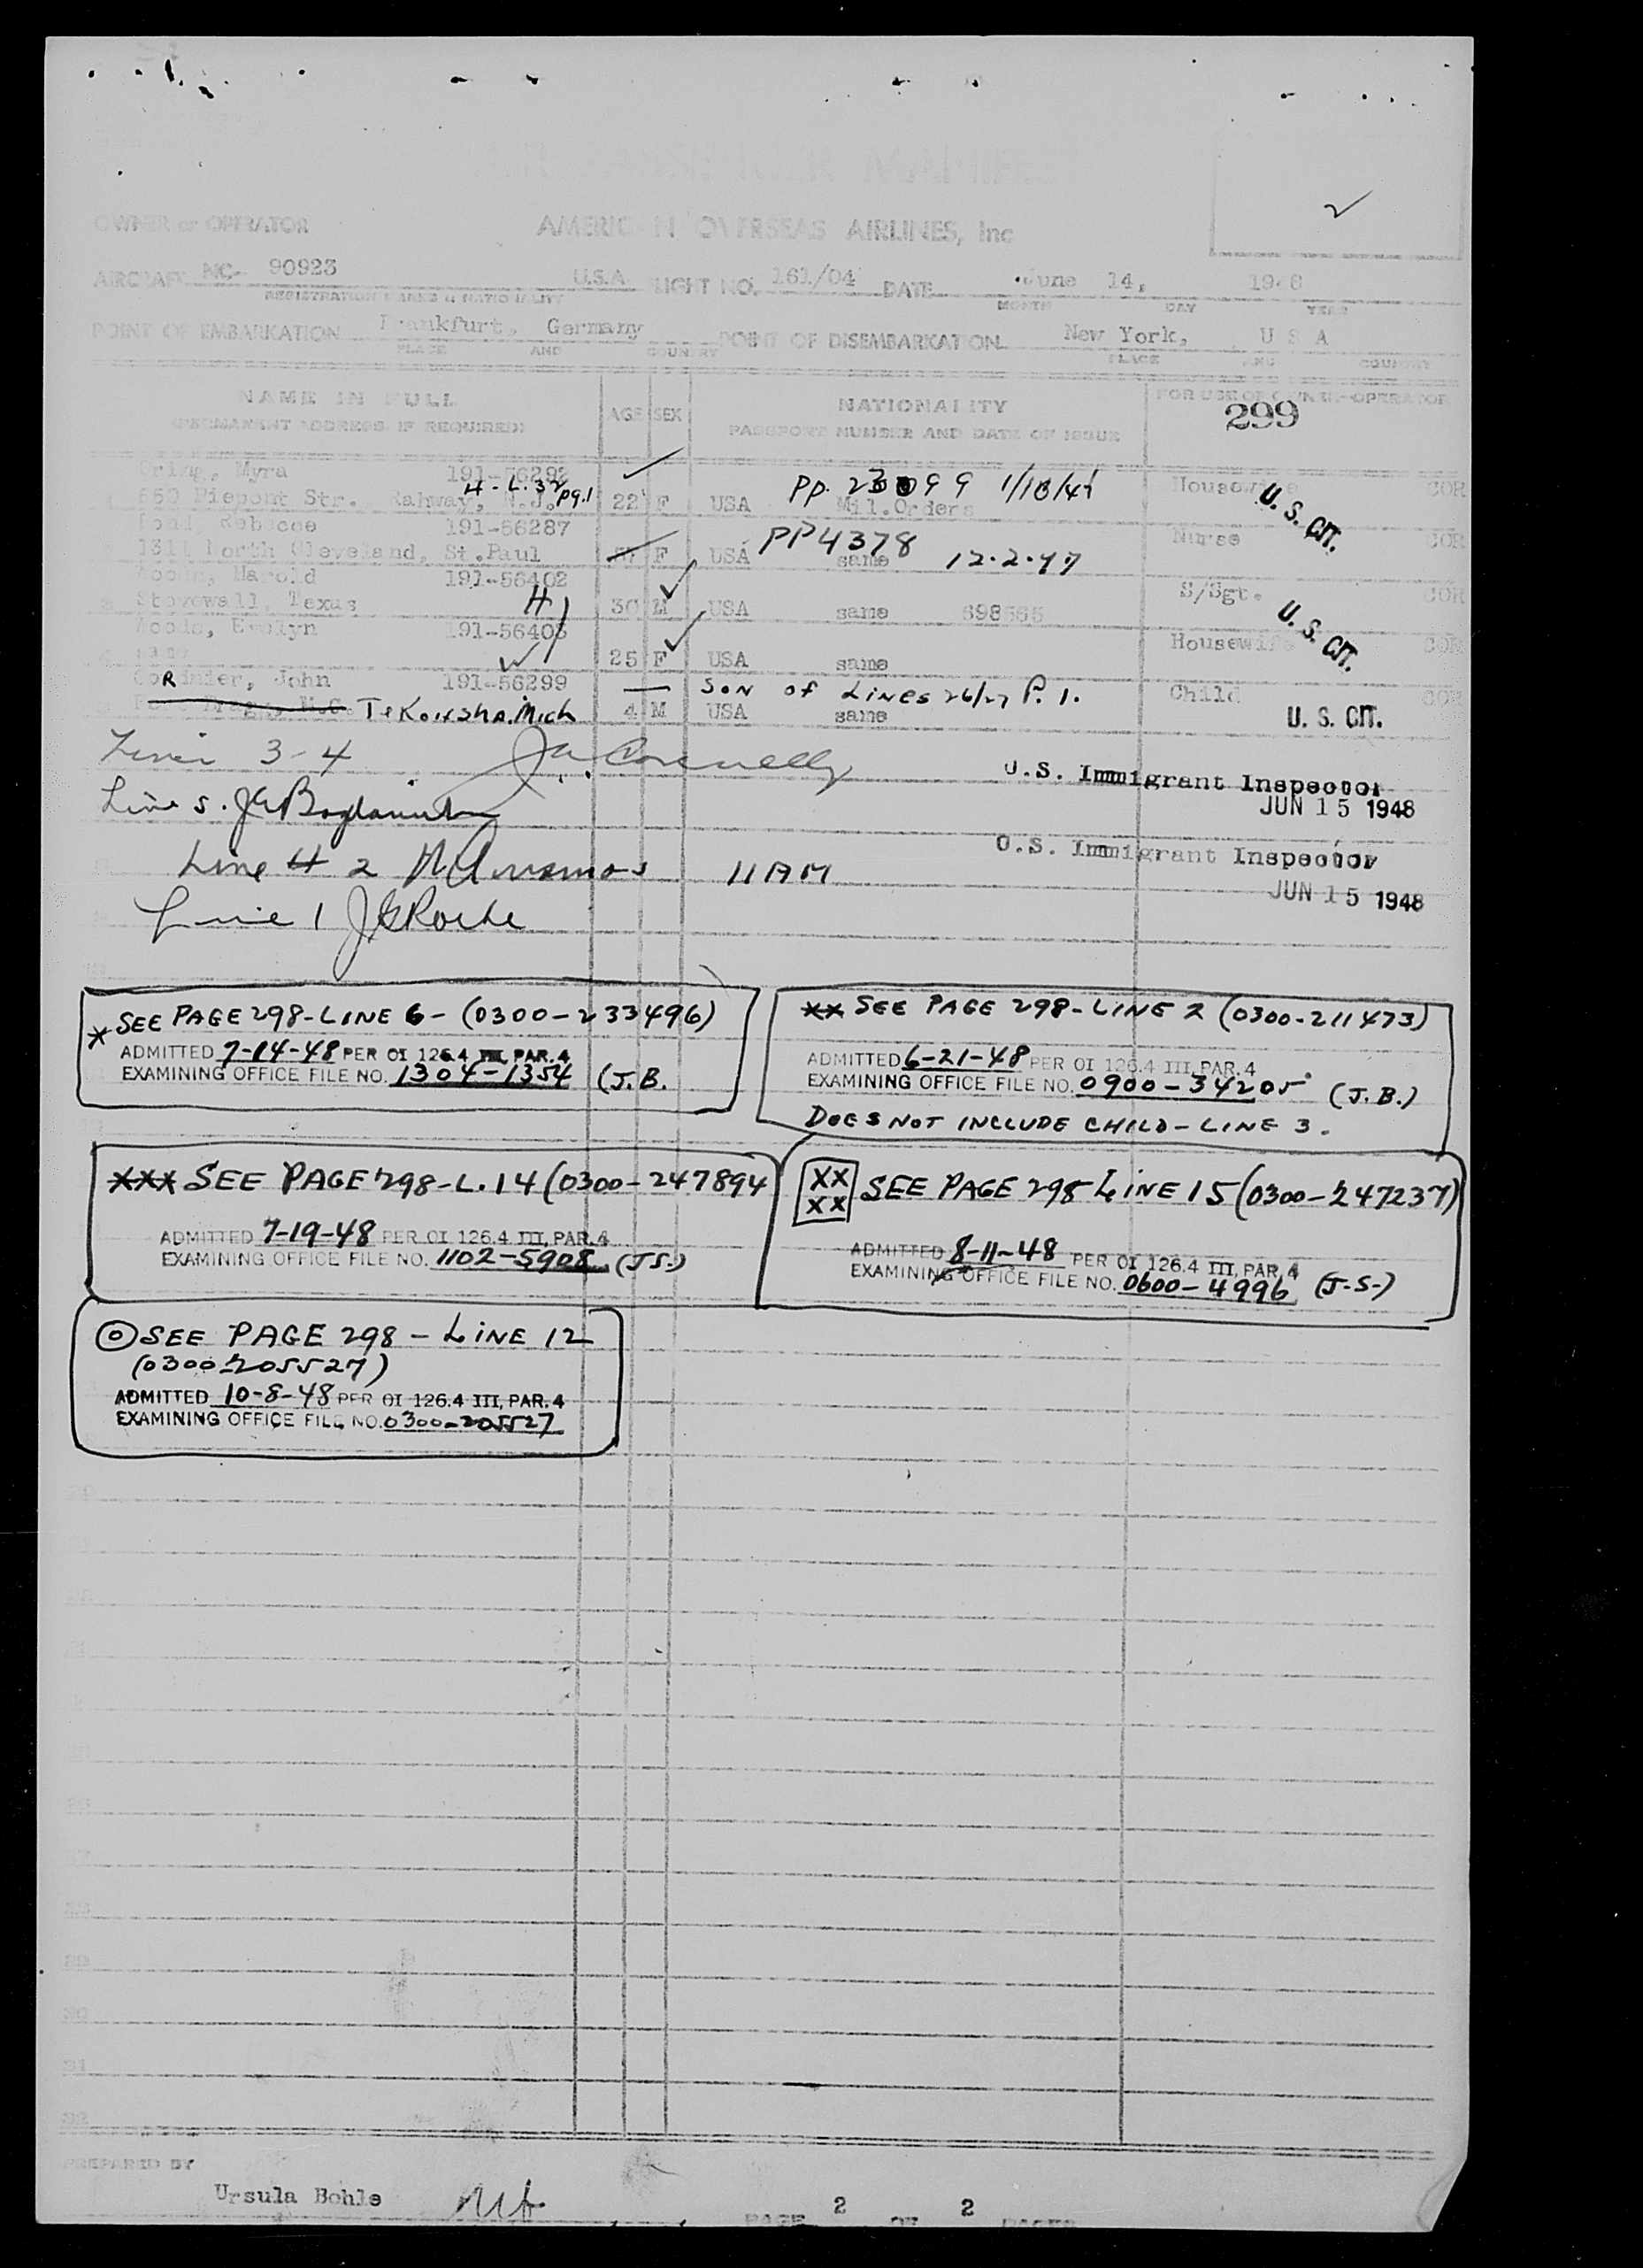 AIR PASSENGER MANIFEST
OWNER or OPERATOR AMERICAN OVERSEAS AIRLINES, Inc
AIRCRAFT NC- 90923 U.S.A. FLIGHT NO. 161/04 DATE June 14, 1948
REGISTRATION MARKS & NATIONALITY MONTH DAY YEAR
POINT OF EMBARKATION Frankfurt, Germany POINT OF DISEMBARKATION New York, U S A
PLACE AND COUNTRY PLACE AND COUNTRY
NAME IN FULL AGE SEX NATIONALITY FOR USE OF OWNER-OPERATOR
(PERMANENT ADDRESS IF REQUIRED) PASSPORT NUMBER AND DATE OF ISSUE 299
Myra 191-56292
H-L.32 pg.1 PP. 1/18/47 Housewife
Str. Rahway, N.J. 22 F USA Mil.Orders U. S. CIT. COR
191-56287 PP4378 12-2-47 Nurse
North Cleveland, St.Paul F USA same COR
Woods, Harold 191-56402 S/Sgt.
Texas H 30 M USA same COR
Woods, Evelyn 191-56403 Housewife U. S. CIT.
same 25 F USA same COR
John 191-56299 — SON of LINES 26/27 P. 1. Child COR
Tekonsha. Mich 4 M USA same U. S. CIT.
Lines 3-4 J Connelly
U.S. Immigrant Inspector
JUN 15 1948
Line 5.
U.S. Immigrant Inspector
Line 2 11 AM
JUN 15 1948
Line 1 JGRoche
* SEE PAGE 298-LINE 6-(0300-233496)
ADMITTED 7-14-48 PER OI 126.4 III, PAR. 4
EXAMINING OFFICE FILE NO. 1304-1354 (J.B.
** SEE PAGE 298-LINE 2 (0300-211473)
ADMITTED 6-21-48 PER OI 126.4 III, PAR. 4
EXAMINING OFFICE FILE NO. 0900-34205 (J.B.)
DOES NOT INCLUDE CHILD-LINE 3.
*** SEE PAGE 298-L.14 (0300-247894
ADMITTED 7-19-48 PER OI 126.4 III, PAR. 4
EXAMINING OFFICE FILE NO. 1102-5908 (J.S.)
XX XX SEE PAGE 298 LINE 15 (0300-247237)
ADMITTED 8-11-48 PER OI 126.4 III, PAR. 4
EXAMINING OFFICE FILE NO. 0600-4996 (J.S.)
SEE PAGE 298-LINE 12
(0300-205527)
ADMITTED 10-8-48 PER OI 126.4 III, PAR. 4
EXAMINING OFFICE FILE NO. 0300-205527
29
30
31
32
PREPARED BY
Ursula Bohle
PAGE 2 OF 2 PAGES